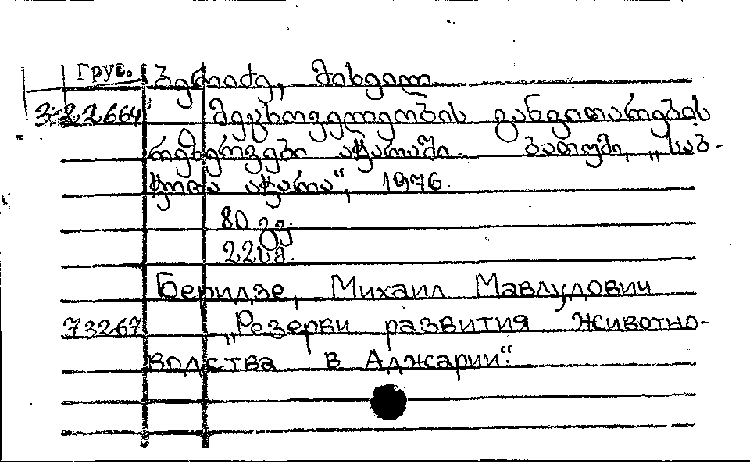 Груз. ბერიძე, მიხეილ
3-22664 მეცხოველეობის განვითარების
რეზერვები აჭარაში. ბათუმი, „საბ-
ჭოთა აჭარა“, 1976.
80 გვ.
22სმ.
Беридзе, Михаил Мавлудович
73267 „Резерви развития животно-
водства в Аджарии“.